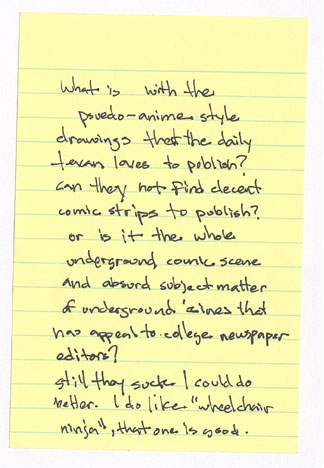 What is with the
psuedo-anime style
drawings that the daily
texan loves to publish?
can they not find decent
comic strips to publish?
or is it the whole
underground, comic scene
and absurd subject matter
of underground 'zines that
has appeal to college newspaper
editors?
still they suck I could do
better. I do like "wheelchair
ninja", that one is good.